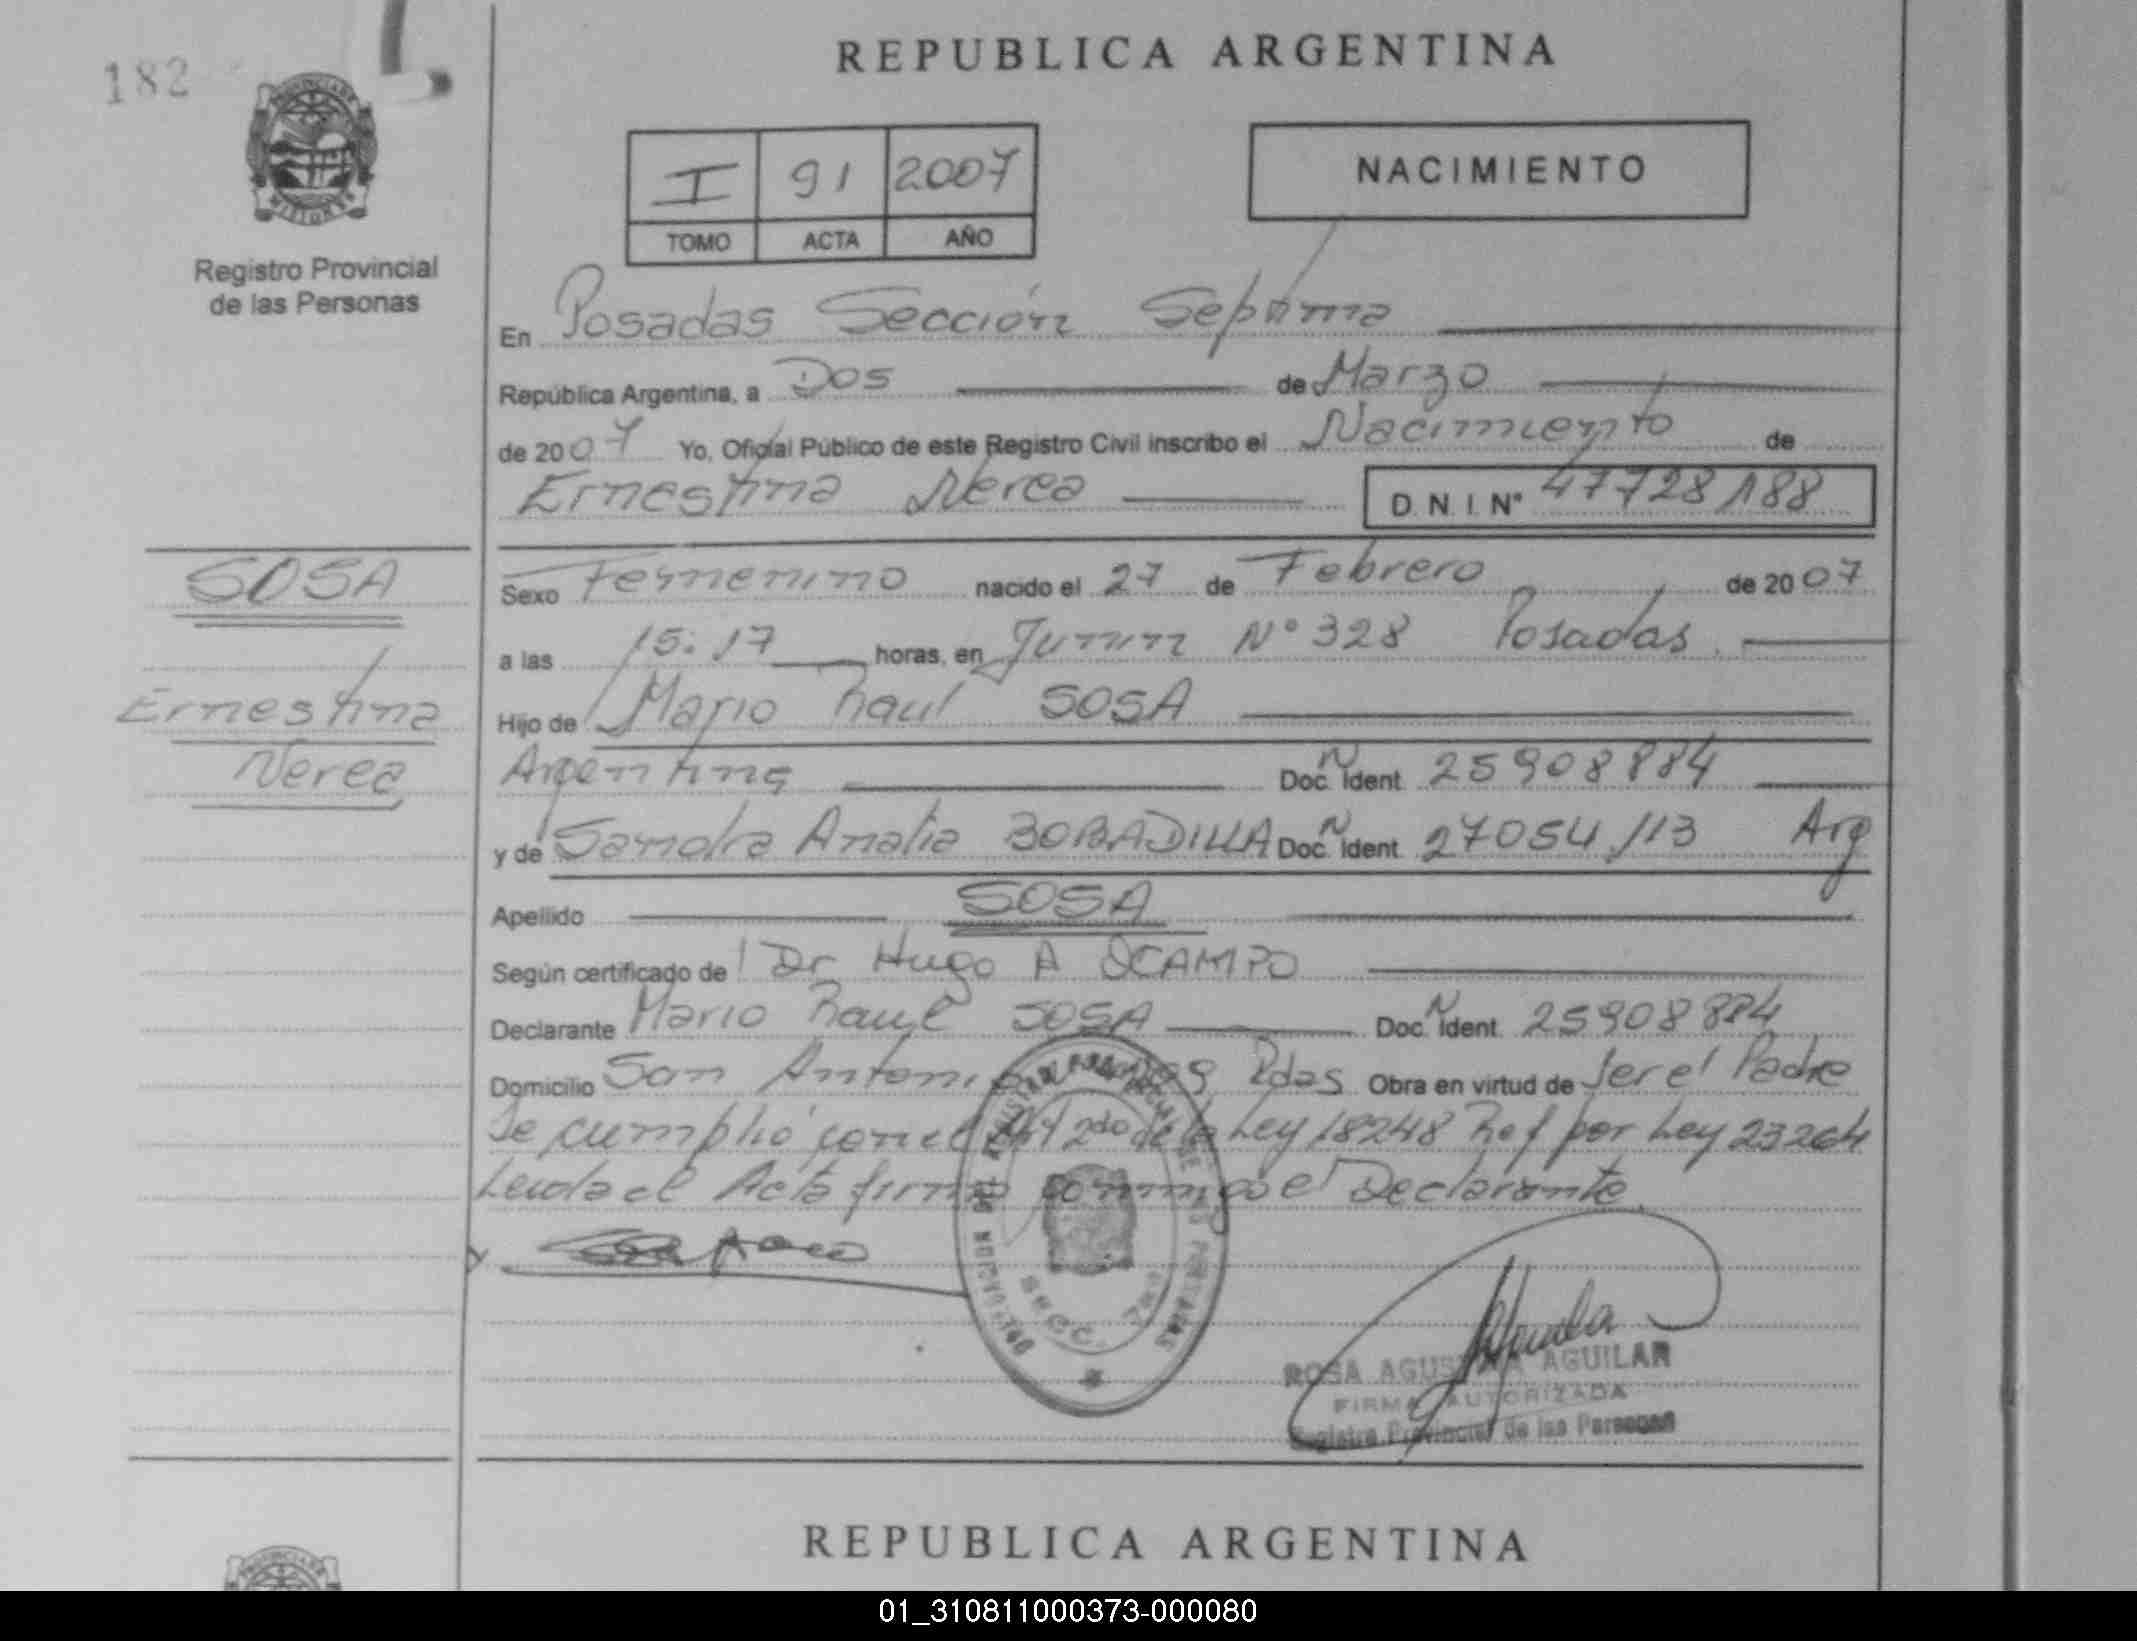 182
REPUBLICA ARGENTINA
I 91 2007
TOMO ACTA AÑO
NACIMIENTO
Registro Provincial
de las Personas
En Posadas Sección Septima
República Argentina, a Dos de Marzo
de 2007 Yo, Oficial Público de este Registro Civil inscribo el Nacimiento de
Ernestina Nerea D. N. I. N° 47728188
SOSA
Ernestina
Nerea
Sexo Femenino nacido el 27 de Febrero de 2007
a las 15:17 horas, en Junin N° 328 Posadas
Hijo de Mario Raul SOSA
Argentina Doc. N Ident. 25908884
y de Sandra Analia BOBADILLA Doc. N Ident. 27054113 Arg
Apellido SOSA
Según certificado de Dr Hugo A OCAMPO
Declarante Mario Raul SOSA Doc. N Ident. 25908884
Domicilio San Antonio Pdas Obra en virtud de Ser el Padre
Se cumplió con el Art 2do de la Ley 18248 Ref por Ley 23264
Leida el Acta firma conmigo el Declarante
ROSA AGUSTINA AGUILAR
FIRMA AUTORIZADA
Registro Provincial de las Personas
REPUBLICA ARGENTINA
01_310811000373-000080